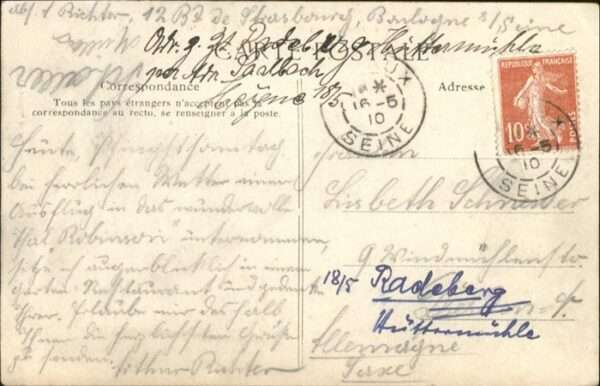 Abs. A Richter, 12 Bd de Strasbourg, Boulogne s/Seine
CARTE POSTALE
Radeberg Hüttermühle
per Adr.
18/5
Correspondance
Adresse
Tous les pays étrangers n'acceptent pas la
correspondance au recto, se renseigner à la poste.
REPUBLIQUE FRANÇAISE
10
POSTES
16-5
10
SEINE
16-5
10
SEINE
Heute, Pfingstsonntag
bei herrlichem Wetter einen
Ausflug in das wundervolle
Thal Robinson unternommen,
sitze ich augenblicklich in einem
Restaurant und gedenke
Ihrer. Erlaube mir deshalb
Ihnen die herzlichsten Grüsse
zu senden.
Arthur Richter
Lisbeth Schneider
9 Windmühlenstr
18/5 Radeberg
Hüttermühle
Allemagne
Saxe